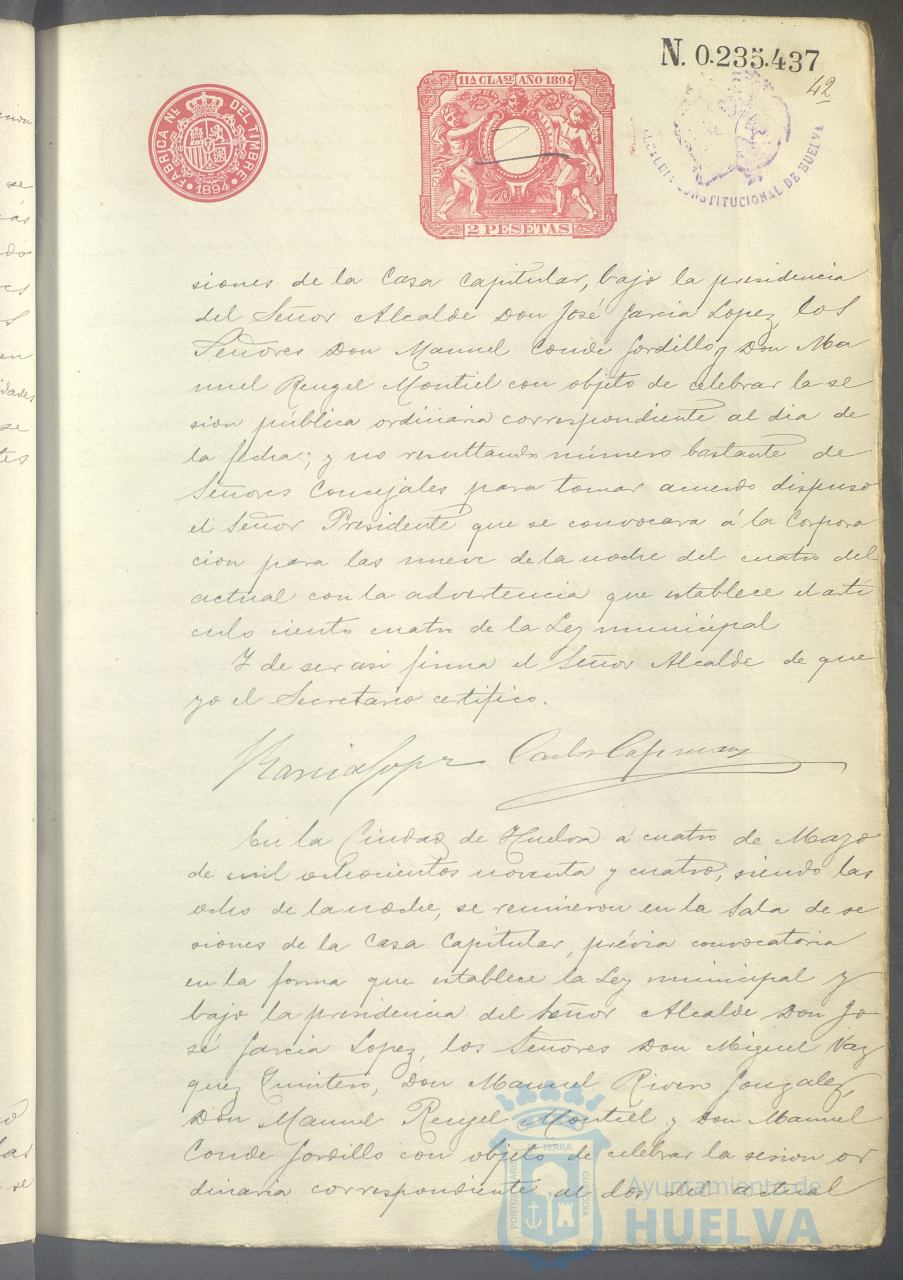 N. 0.235.437
42
FABRICA NL. DEL TIMBRE
1894
11A CLASE AÑO 1894
2 PESETAS
ALCALDIA CONSTITUCIONAL DE HUELVA
siones de la Casa Capitular, bajo la presidencia
del Señor Alcalde Don José Garcia Lopez, los
Señores Don Manuel Conde Gordillo y Don Ma
nuel Rengel Montiel con objeto de celebrar la se
sion pública ordinaria correspondiente al dia de
la fecha; y no resultando número bastante de
Señores Concejales para tomar acuerdo dispuso
el Señor Presidente que se convocara á la Corpora
cion para las nueve de la noche del cuatro del
actual con la advertencia que establece el arti
culo ciento cuatro de la Ley municipal
Y de ser asi firma el Señor Alcalde de que
yo el Secretario certifico.
Garcia Lopez Carlos
En la Ciudad de Huelva á cuatro de Mayo
de mil ochocientos noventa y cuatro, siendo las
ocho de la noche, se reunieron en la Sala de se
siones de la Casa Capitular, prévia convocatoria
en la forma que establece la Ley municipal y
bajo la presidencia del Señor Alcalde Don Jo
sé Garcia Lopez, los Señores Don Miguel Vaz
quez Quintero, Don Manuel Rivero Gonzalez,
Don Manuel Rengel Montiel y Don Manuel
Conde Gordillo con objeto de celebrar la sesion or
dinaria correspondiente al dos del actual
PORTUS MARIS ET TERRÆ CUSTODIA
Ayuntamiento de
HUELVA